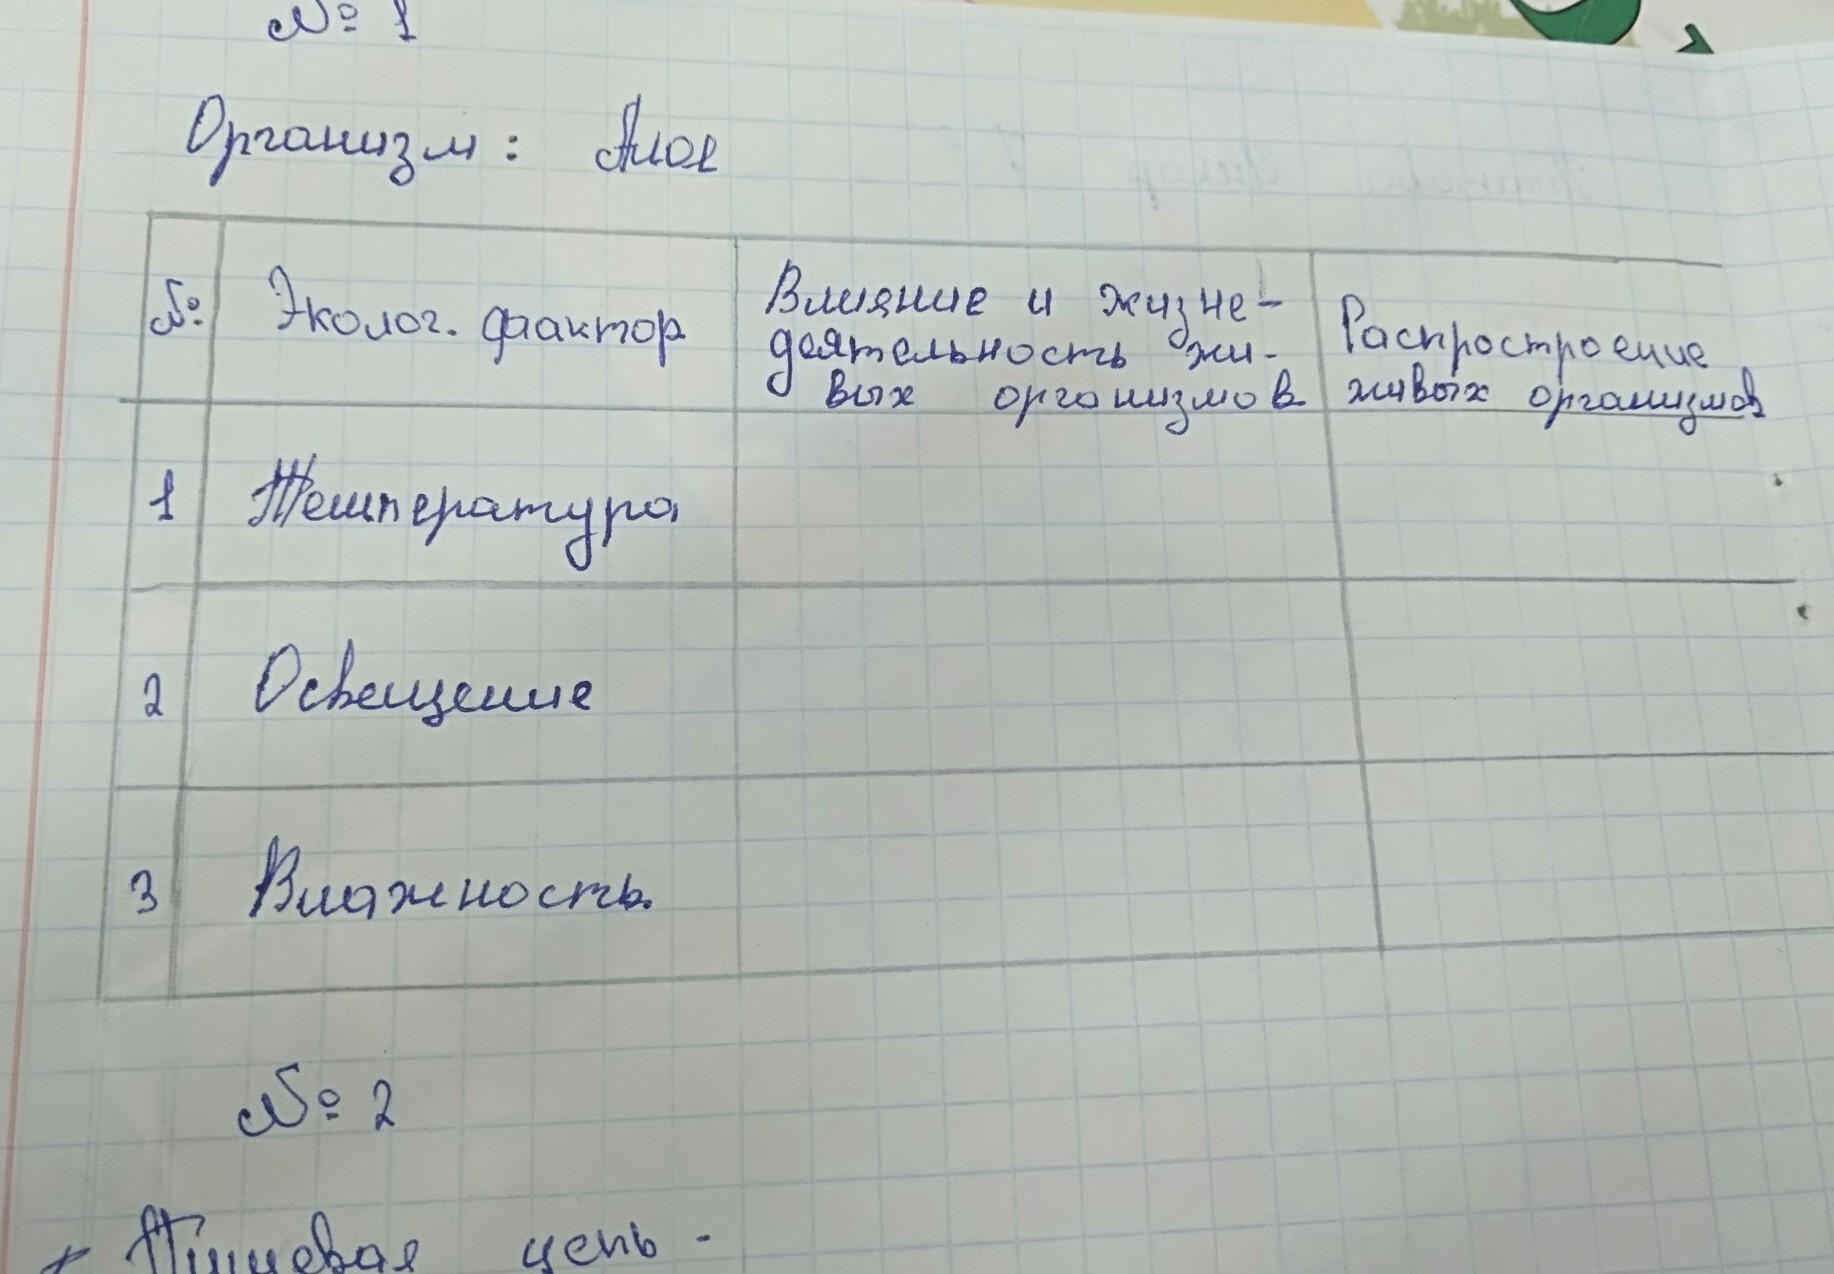 № 1
Организм: Алое
№
Эколог. фактор
Влияние и жизне-
деятельность жи-
вых организмов
Распростроение
живых организмов
1 Температура
2 Освещение
3 Влажность
№ 2
Пищевая цепь -